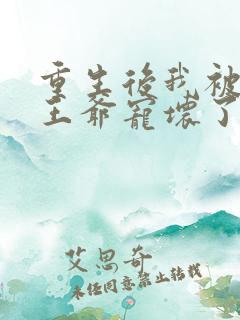 重生後我被
王爺寵壞了
艾思奇
未经同意禁止转载